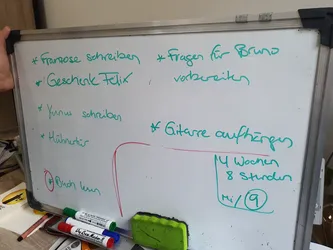 * Françoise schreiben
* Geschenk Felix
* Yunus schreiben
* Hühnertür
* Buch lesen
* Fragen für Bruno
vorbereiten
* Gitarre aufhängen
4 Wochen
8 Stunden
Mi / 9